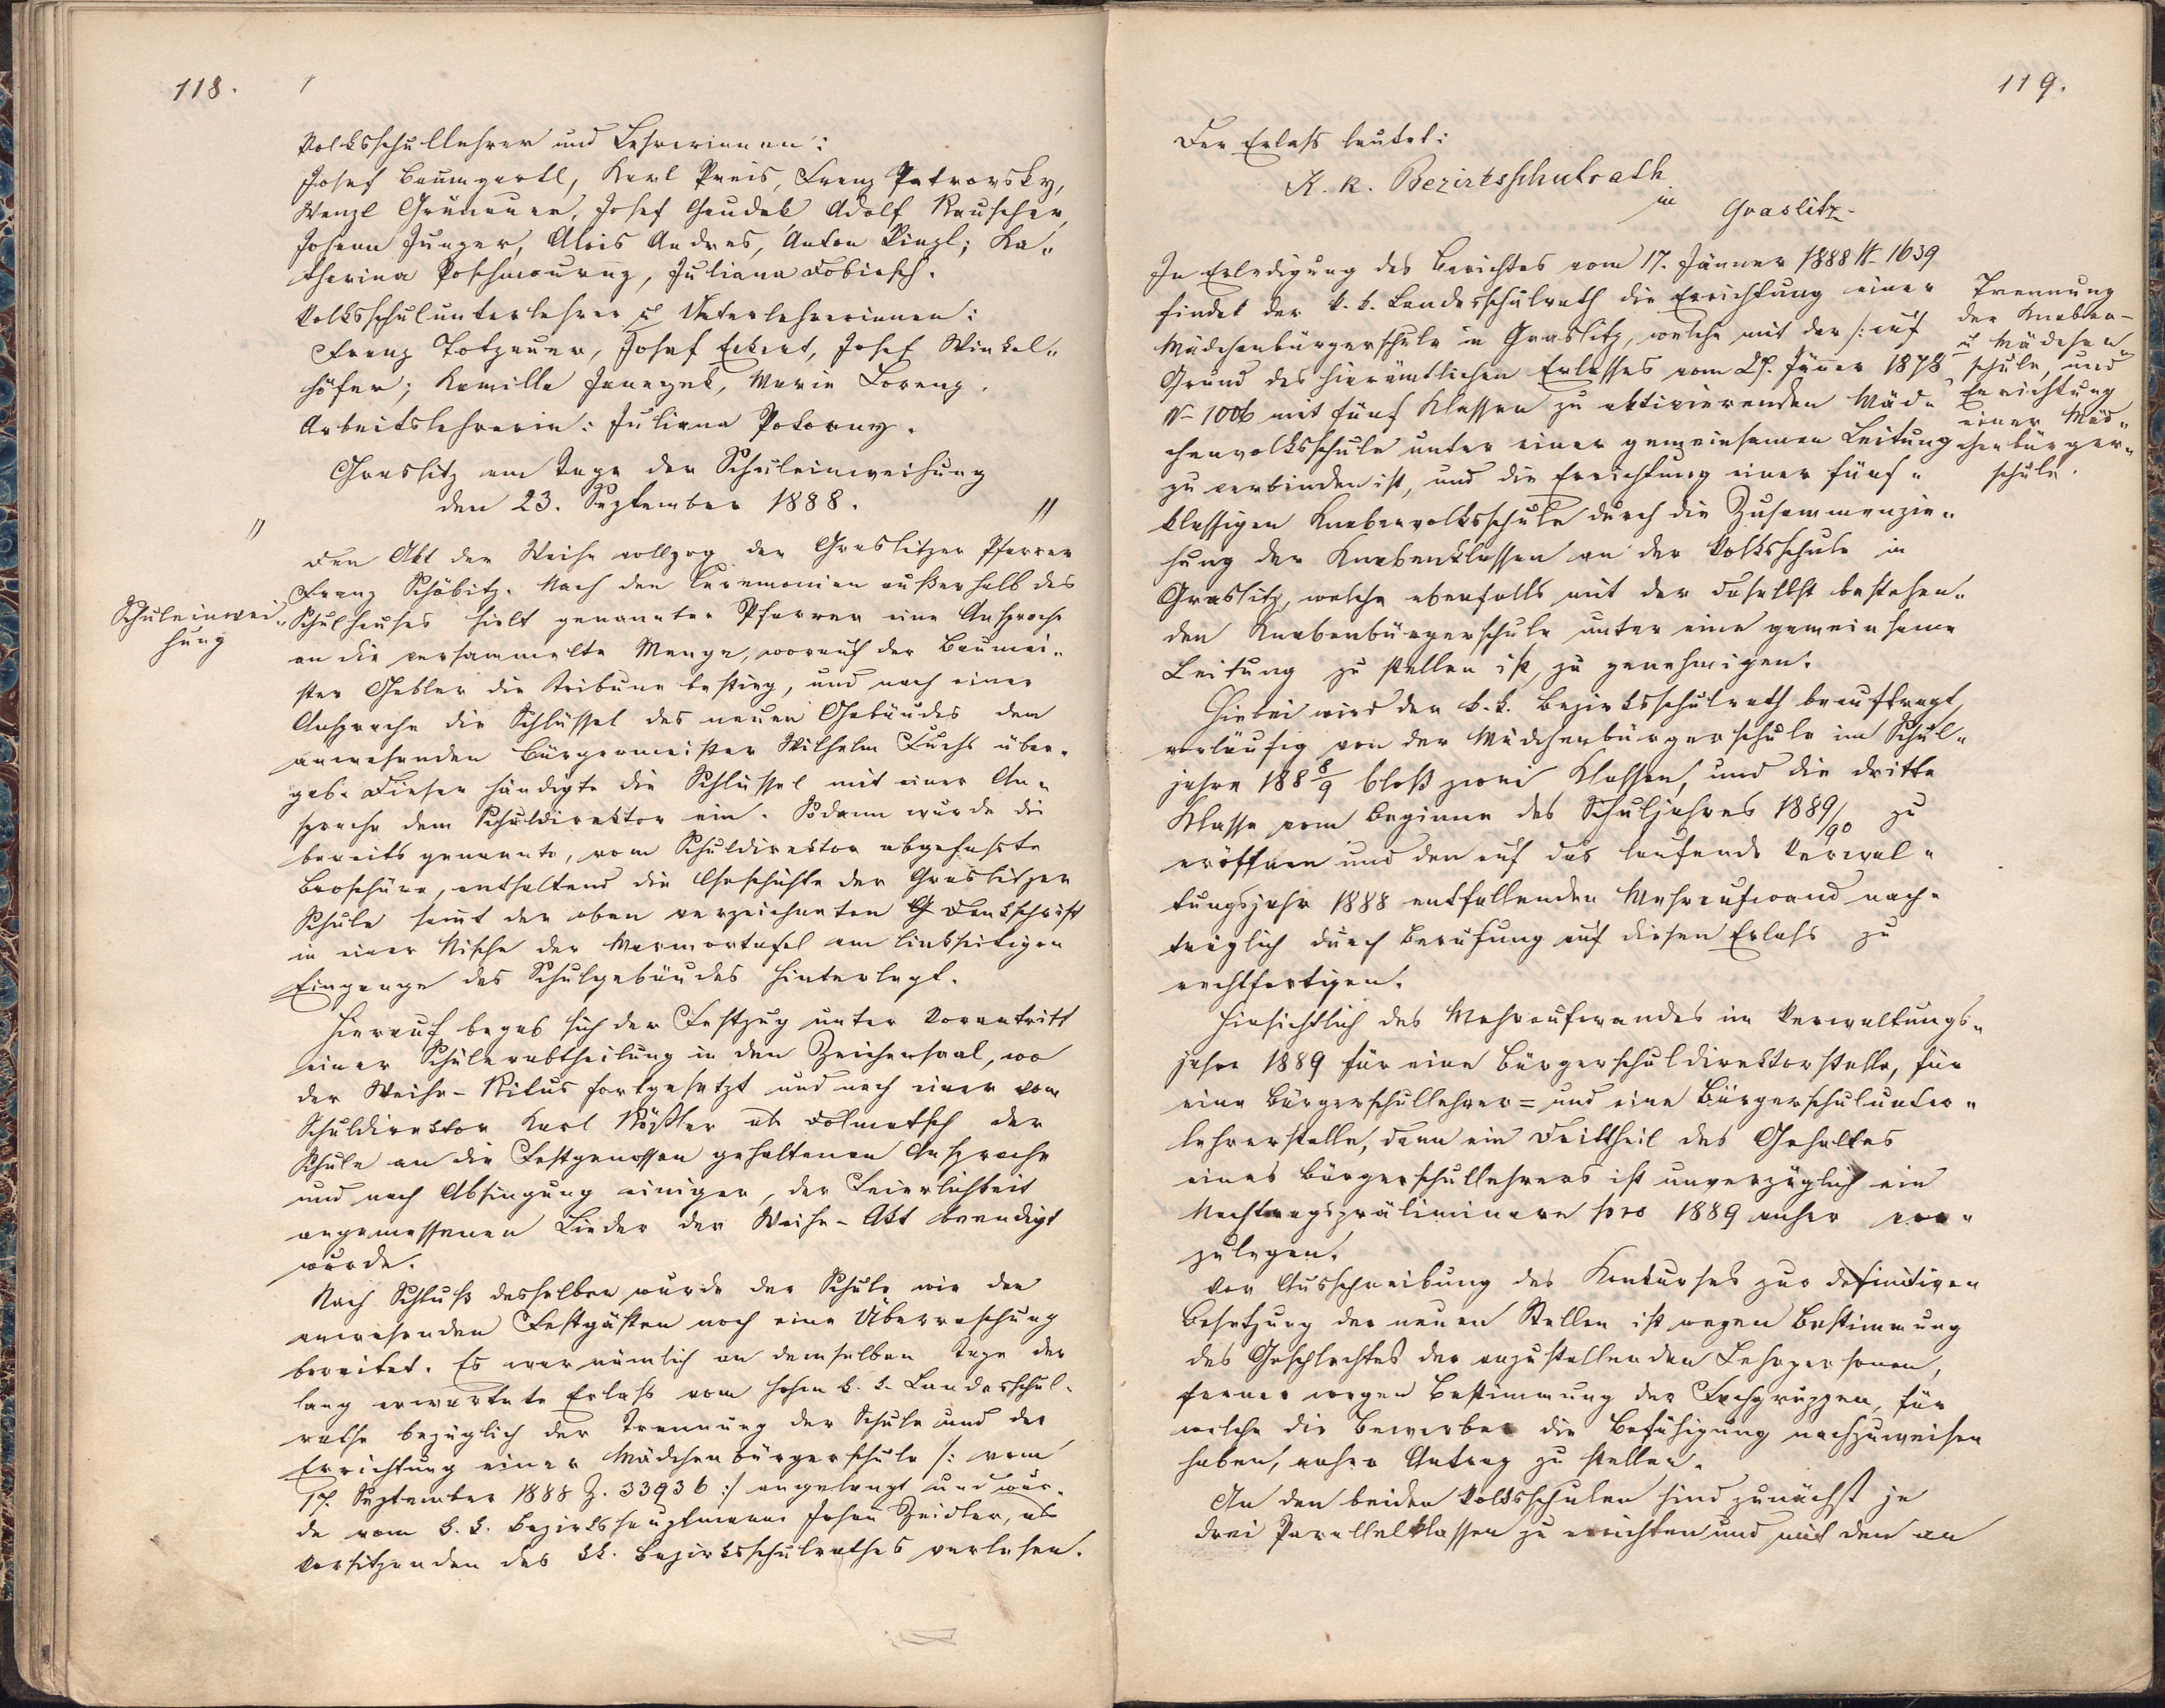 118.
Volksschullehrer und Lehrerinnen:
Josef Baumgartl, Karl Preis, Franz Petrovsky,
Wenzl Grünauer, Josef Gaudek Adolf Rauscher,
Johann Junger, Alois Andres, Anton Kinzl; Ka„
tharina Poschmourny, Juliana Dobiasch.
Volksschulunterlehrer u Unterlehrerinnen:
Franz Totzauer, Josef Eckert, Josef Winkel„
höfer; Kamilla Janezek, Marie Lorenz.
Arbeitslehrerin: Juliana Pokorny.
Graslitz am Tage der Schuleinweihung
den 23. September 1888.
Schuleinwei„
hung
Den Akt der Weihe vollzog der Graslitzer Pfarrer
Franz Schöbitz. Nach den Ceremonien außerhalb des
Schulhauses hielt genannter Pfarrer eine Ansprache
an die versammelte Menge, worauf der Baumei„
ster Gebler die Tribune bestieg, und nach einer
Ansprache die Schlüssel des neuen Gebäudes dem
anwesenden Bürgermeister Wilhelm Fuchs über„
gab. Dieser händigte die Schlüssel mit einer An„
sprache dem Schuldirektor ein. Sodann wurde die
bereits genannte, vom Schuldirektor abgefasste
Broschüre, enthaltend die Geschichte der Graslitzer
Schule samt der oben verzeichneten Denkschrift
in einer Nische der Marmortafel am linkseitigen
Eingange des Schulgebäudes hinterlegt.
Hierauf begab sich der Festzug unter Vorantritt
einer Schülerabtheilung in den Zeichensaal, wo
der Weihe-Ritus fortgesetzt und nach einer vom
Schuldirektor Karl Rößler als Dolmetsch der
Schule an die Festgenossen gehaltenen Ansprache
und nach Absingung einiger, der Feierlichkeit
angemessenen Lieder der Weihe-Akt beendigt
wurde.
Nach Schluß desselben wurde der Schule wie den
anwesenden Festgästen noch eine Überraschung
bereitet. Es war nämlich an demselben Tage der
lang erwartete Erlaß vom hohen k. k. Landesschul„
rathe bezüglich der Trennung der Schule und der
Errichtung einer Mädchenbürgerschule /: vom
17. September 1888 Z. 33936 :/ angelangt und wur„
de vom k. k. Bezirkshauptmann Johann Zeidler, als
Vorsitzenden des kk. Bezirksschulrathes verlesen.
119.
Der Erlaß lautet:
K. k. Bezirksschulrath
in Graslitz.
In Erledigung des Berichtes vom 17. Jänner 1888 N- 1639
findet der k. k. Landesschulrath die Errichtung einer
Mädchenbürgerschule in Graslitz, welche mit der /: auf
Grund des hierämtlichen Erlasses vom 27. Jänner 1878
N- 1006 mit fünf Klassen zu aktivierenden Mäd„
chenvolksschule unter einer gemeinsamen Leitung
zu verbinden ist, und die Errichtung einer fünf„
klassigen Knabenvolksschule durch die Zusammenzie„
hung der Knabenklassen an der Volksschule in
Graslitz, welche ebenfalls mit der daselbst bestehen„
den Knabenbürgerschule unter eine gemeinsame
Leitung zu stellen ist, zu genehmigen.
Trennung
der Knaben-
u Mädchen„
schule, und
Errichtung
einer Mäd„
chenbürger„
schule.
Hiebei wird der k. k. Bezirksschulrath beauftragt,
vorläufig von der Mädchenbürgerschule im Schul„
jahre 188 8/9 bloß zwei Klassen, und die dritte
Klasse vom Beginne des Schuljahres 1889/90 zu
eröffnen und den auf das laufende Verwal„
tungsjahr 1888 entfallenden Mehraufwand nach„
träglich durch Berufung auf diesen Erlaß zu
rechtfertigen.
Hinsichtlich des Mehraufwandes im Verwaltungs„
jahre 1889 für eine Bürgerschuldirektorstelle, für
eine Bürgerschullehrer= und eine Bürgerschulunter„
lehrerstelle, dann ein Drittheil des Gehaltes
eines Bürgerschullehrers ist unverzüglich ein
Nachtragspräliminare pro 1889 anher vor„
zulegen.
Vor Ausschreibung des Konkurses zur definitiven
Besetzung der neuen Stellen ist wegen Bestimmung
des Geschlechtes der anzustellenden Lehrpersonen,
ferner wegen Bestimmung der Fachgruppen, für
welche die Bewerber die Befähigung nachzuweisen
haben, anher Antrag zu stellen.
An den beiden Volksschulen sind zunächst je
drei Parallelklassen zu errichten und mit den an